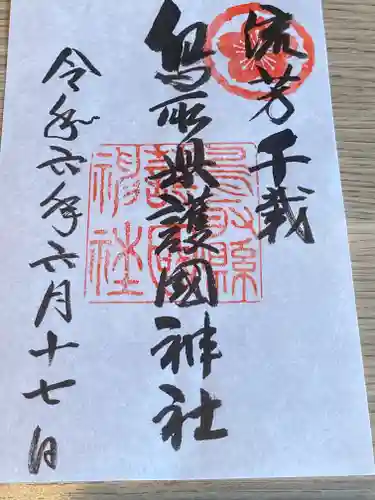 流芳千載
鳥取県護國神社
令和六年六月十七日
鳥取縣
護國
神社